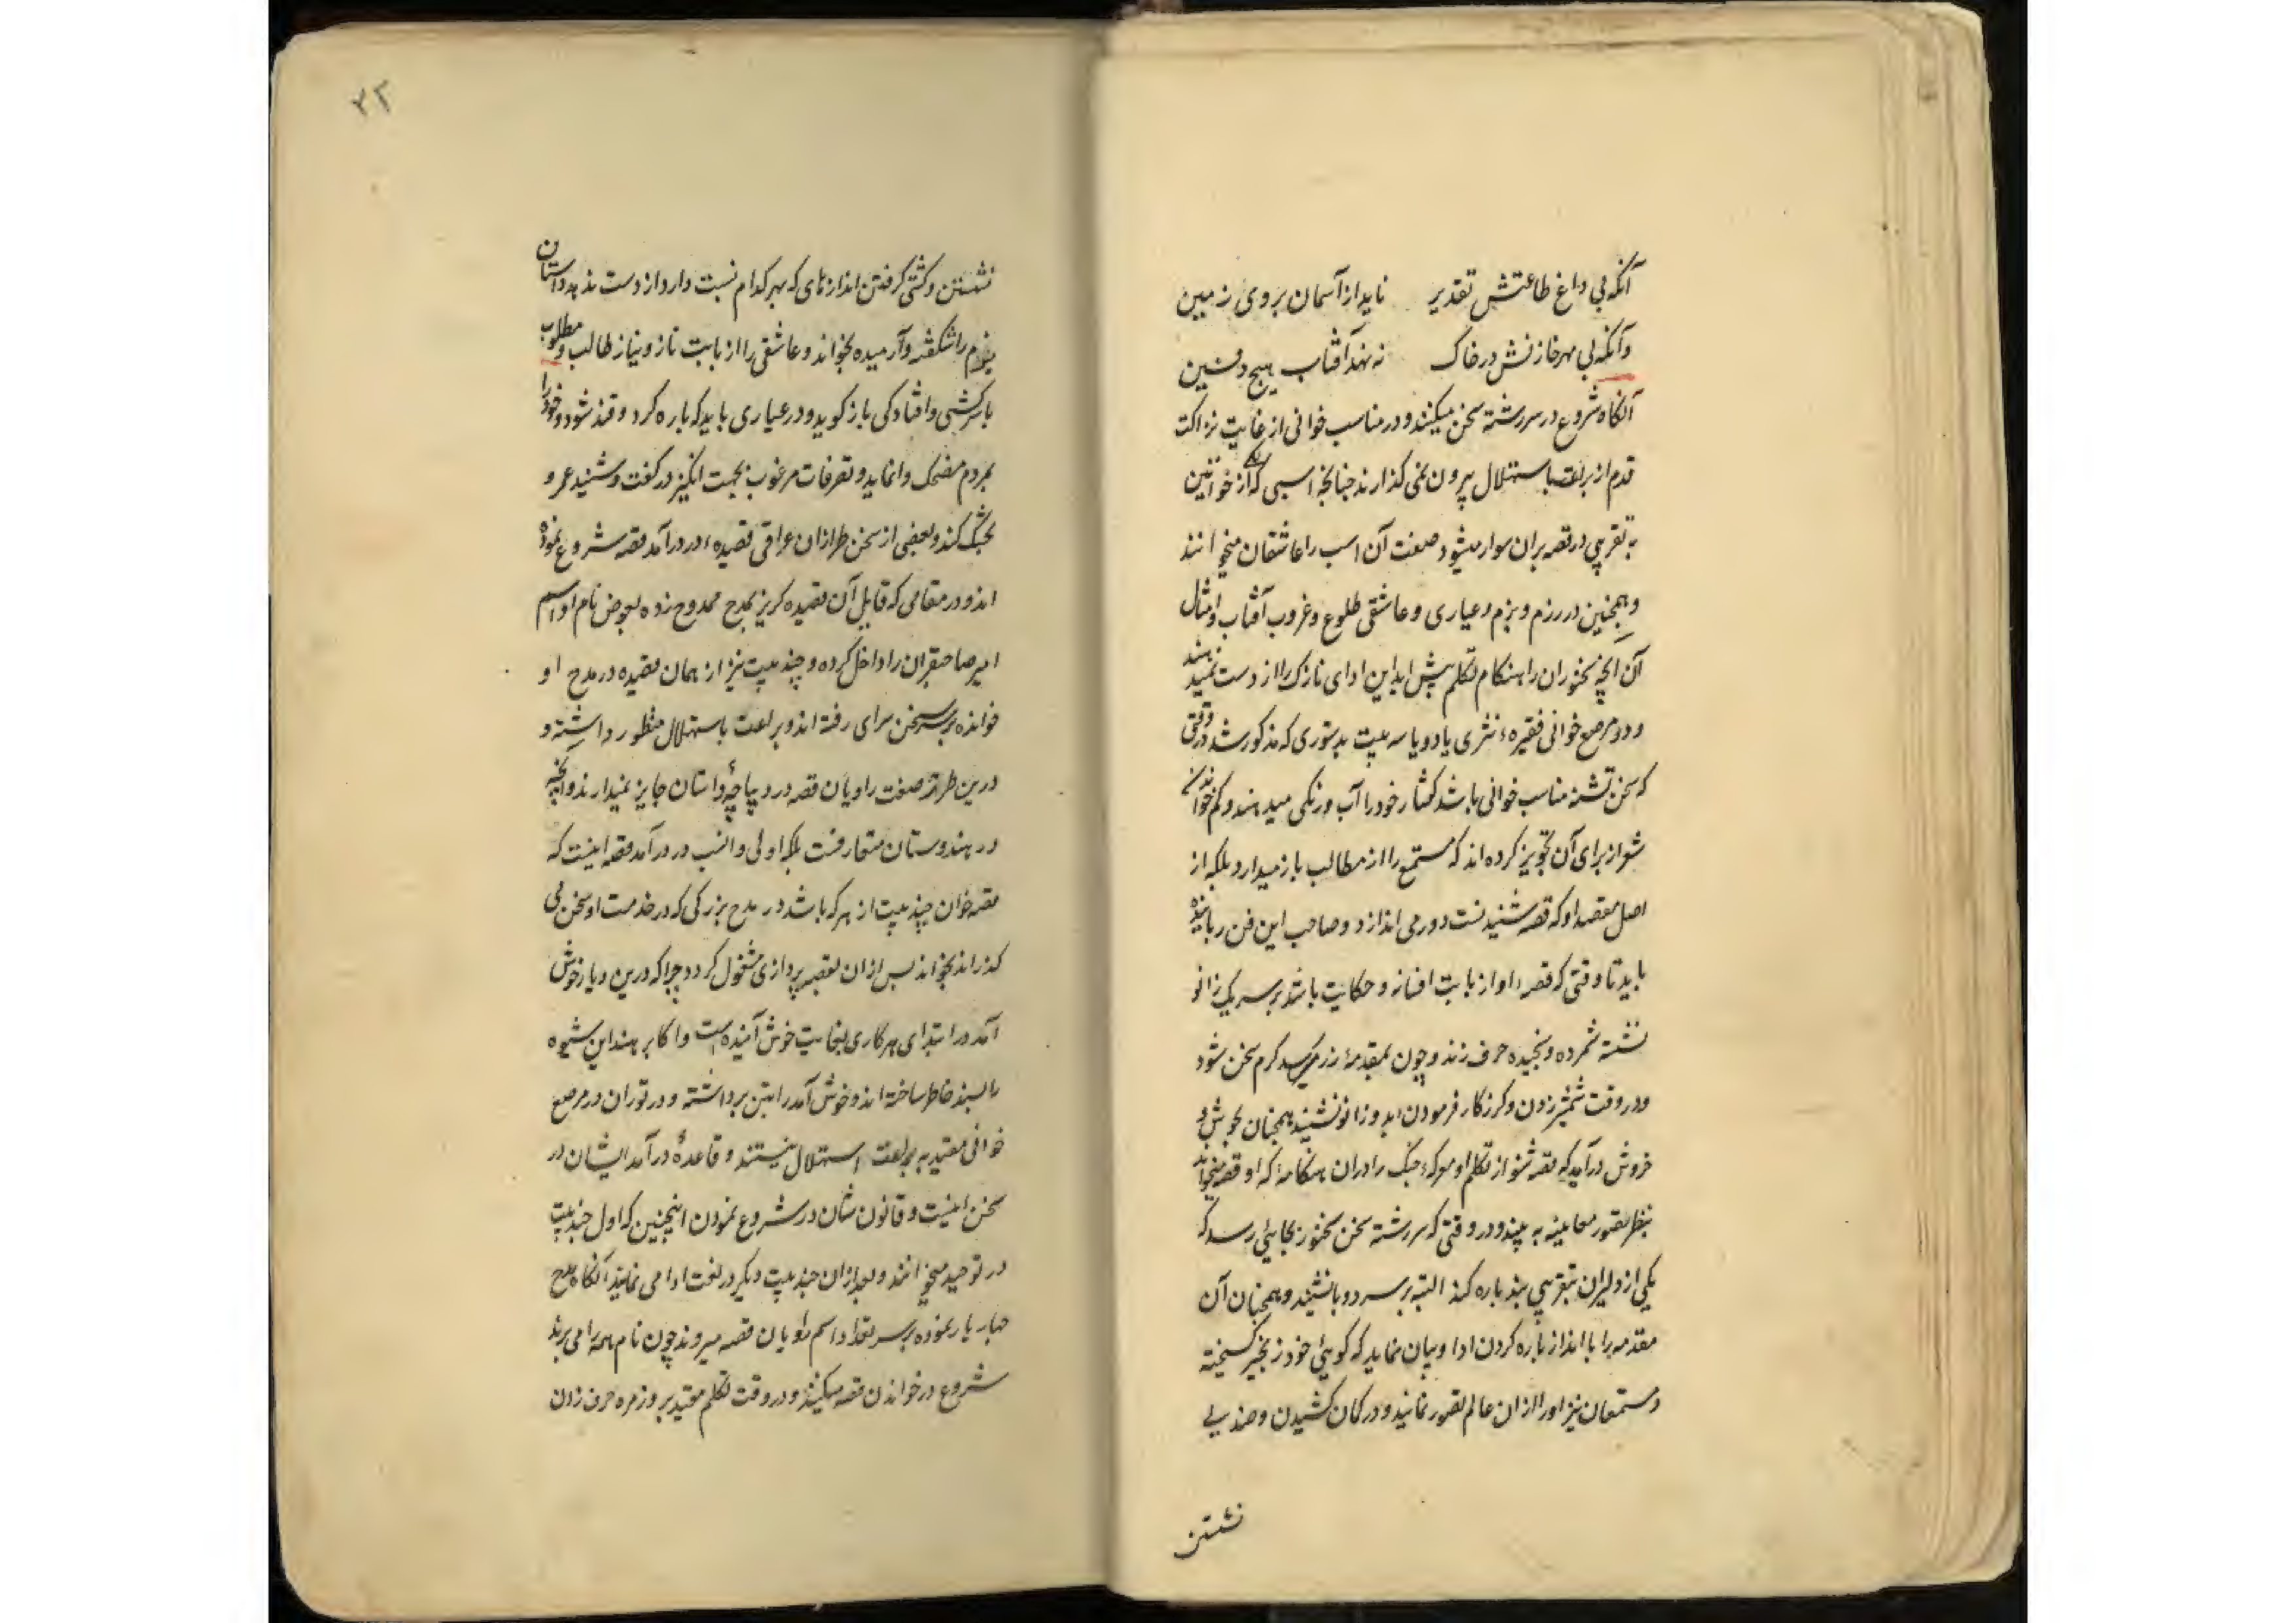 آنکه بی داغ طاعتش تقدیر ناید از آسمان بروی زمین
وآنکه بی مهر خازنش در خاک ننهد آفتاب هیچ دفین
آنکاه شروع در سررشته سخن میکنند و در مناسب خوانی از غایت نزاکت
قدم از براعت باستهلال بیرون نمی کذارند چنانچه اسبی که از خواتین
به تقریبی در قصه بران سوار میشود صفت آن اسب را عاشقان میخوانند
و همچنین در رزم و بزم و عیاری و عاشقی طلوع و غروب آفتاب و امثال
آن انچه سخنوران را هنکام تکلم پیش اید این ادای نازک را از دست نمیدهند
و در مرصع خوانی فقیره نثری یا دو یا سه بیت بدستوری که مذکور شد در وقتی
که سخن تشنه مناسب خوانی باشد کفتار خود را آب و رنکی میدهند و کم خواندن
شعر از برای آن تجویز کرده اند که مستمع را از مطالب باز میدارد بلکه از
اصل مقصد او که قصه شنیدنست دور می اندازد و صاحب این فن رباینده
باید تا وقتی که قصه او از بابت افسانه و حکایت باشد بر سر یک زانو
نشسته شمرده و سنجیده حرف زند و چون بمقدمه رزم رسد کرم سخن شود
و در وقت شمشیر زدن و کرز کار فرمودن بدو زانو نشیند همچنان بجوش و
خروش درآید که قصه شنو از تکلم او معرکه جنک را دران هنکامه که او قصه میخواند
بنظر تصور معاینه به بیند و در وقتی که سررشته سخن سخنور بجایی رسد که
یکی از دلیران بتقریبی بند پاره کند البته بر سر دو پا نشیند و همچنان آن
مقدمه را با انداز پاره کردن ادا و بیان نماید که کویی خود زنجیر کسیخته
و مستمعان نیز او را ازان عالم تصور نمایند و در کمان کشیدن و صندلی
نشستن
۲۲
نشستن و کشتی کرفتن اندازهای که بهر کدام نسبت دارد از دست ندهد و داستان
بزم را شکفته و آرمیده بخواند و عاشقی را از بابت ناز و نیاز طالب و مطلوب
با سرکشی و افتادکی باز کوید و در عیاری باید که پاره کرد و قند شود و خود را
بمردم مضحک وانماید و تصرفات مرغوب بهجت انکیز در کفت و شنید عمرو
بختک کند و بعضی از سخن طرازان عراقی قصیده در درآمد قصه شروع نموده
اند و در مقامی که قابل آن قصیده کریز بمدح ممدوح زده بعوض نام او اسم
امیر صاحبقران را داخل کرده و چند بیت نیز از همان قصیده در مدح او
خوانده بر سر سخن سرای رفته اند و براعت باستهلال منظور داشته و
درین طراز صفت راویان قصه در دیباچهٔ داستان جایز نمیدارند و انچه
در هندوستان متعارفست بلکه اولی و انسب در درآمد قصه اینست که
قصه خوان چند بیت از هر که باشد در مدح بزرکی که در خدمت او سخن می
کذراند بخواند پس ازان بقصه پردازی مشغول کردد چرا که درین دیار خوش
آمد در ابتدای هر کاری بغایت خوش آینده است و اکابر هند این شیوه
را پسند خاطر ساخته اند و خوش آمد را متین برداشته و در توران در مرصع
خوانی مقید به براعت استهلال نیستند و قاعدهٔ درآمد ایشان در
سخن اینست و قانون شان در شروع نمودن اینچنین که اول چند بیت
در توحید میخوانند و بعد ازان چند بیت دیکر در نعت ادا می نمایند آنکاه مدح
چهار یار نموده بر سر تعداد اسم راویان قصه میروند چون نام همه را می برند
شروع در خواندن قصه میکنند و در وقت تکلم مقید بروزمره حرف زدن